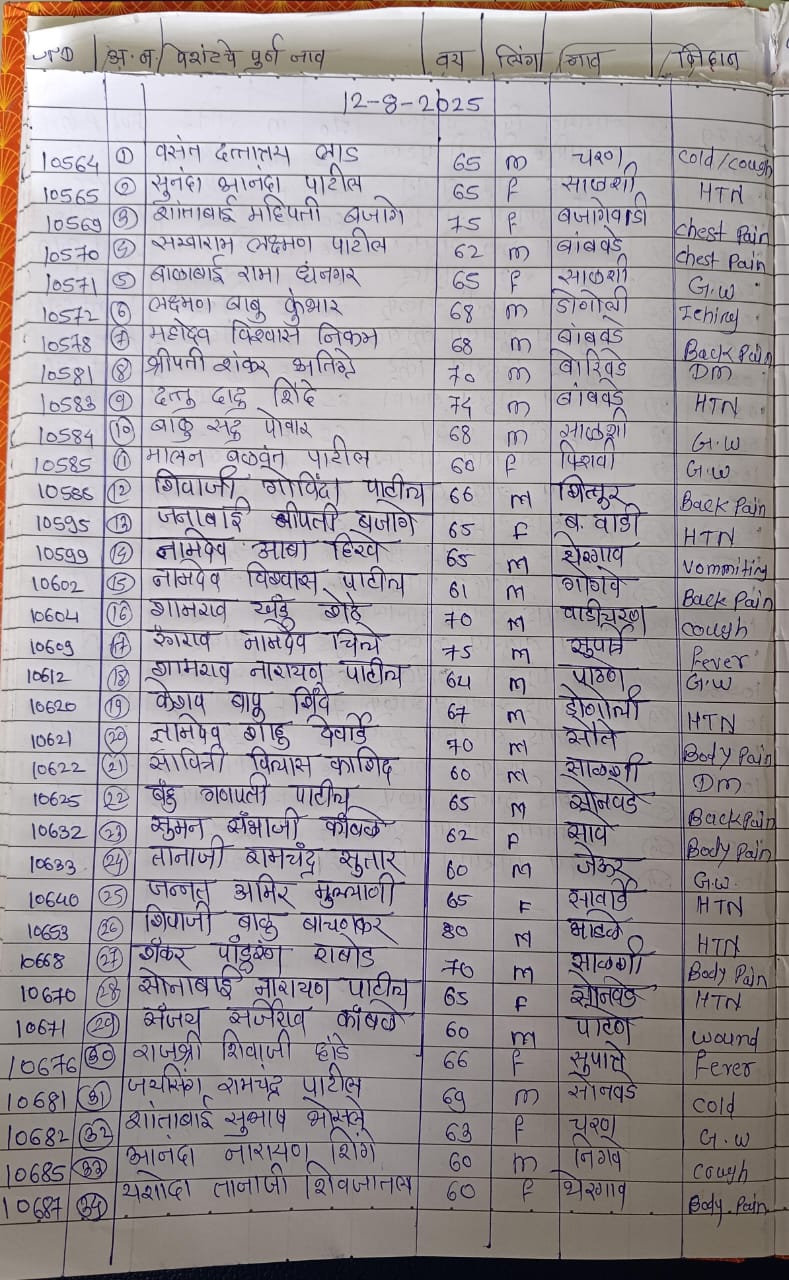 OPD अ.न. पेशंटचे पुर्ण नाव वय लिंग गाव निदान
12-8-2025
10564 1 वसंत दत्तात्रय लाड 65 m चरण cold/cough
10565 2 सुनंदा आनंदा पाटील 65 f साळशी HTN
10569 3 शांताबाई महिपती बजागे 75 f बजागेवाडी chest Pain
10570 4 सखाराम लक्ष्मण पाटील 62 m बांबवडे chest Pain
10571 5 बाळाबाई रामा धनगर 65 f साळशी G.W
10572 6 लक्ष्मण बाबु कुंभार 68 m डोणोली Iching
10578 7 महादेव विश्वास निकम 68 m बांबवडे Back Pain
10581 8 श्रीपती शंकर 70 m बोरिवडे DM
10583 9 दत्तु दादु शिंदे 74 m बांबवडे HTN
10584 10 बाकु सदु पोवार 68 m साळशी G.W
10585 11 मालन बळवंत पाटील 60 f पिशवी G.W
10586 12 शिवाजी गोविंदा पाटील 66 m शित्तूर Back Pain
10595 13 जनाबाई श्रीपती बजागे 65 f ब. वाडी HTN
10599 14 नामदेव आबा हिरवे 65 m थेरगाव vommiting
10602 15 नामदेव विश्वास पाटील 61 m गोगवे Back Pain
10604 16 शामराव खंडु रोडे 70 m वाडीचरण cough
10609 17 रंगराव नामदेव चिले 75 m सुपात्रे Fever
10612 18 शामराव नारायण पाटील 64 m पाटणे G.W
10620 19 केशव बापू शिंदे 67 m डोणोली HTN
10621 20 नामदेव शाहु देवार्डे 70 m सोते Body Pain
10622 21 सावित्री विलास काशिद 60 m साळशी DM
10625 22 बंडु गणपती पाटील 65 m सोनवडे Back pain
10632 23 सुमन संभाजी कांबळे 62 F सावे Body Pain
10633 24 तानाजी रामचंद्र सुतार 60 m जेऊर G.W.
10640 25 जन्नत अमिर मुल्लाणी 65 F सावर्डे HTN
10653 26 शिवाजी बाळु बाचणकर 80 m भाडळे HTN
10668 27 शंकर पांडुरंग राबोड 70 m साळशी Body Pain
10670 28 सोनाबाई नारायण पाटील 65 F सोनवडे HTN
10671 29 संजय सर्जेराव कांबळे 60 m पाटणे wound
10676 30 राजश्री शिवाजी हांडे 66 f सुपात्रे Fever
10681 31 जयसिंग रामचंद्र पाटील 69 m सोनवडे Cold
10682 32 शांताबाई सुभाष भोसले 63 f चरण G.W
10685 33 आनंदा नारायण शिंगे 60 m निगवे cough
10687 34 यशोदा तानाजी 60 f थेरगाव Body Pain